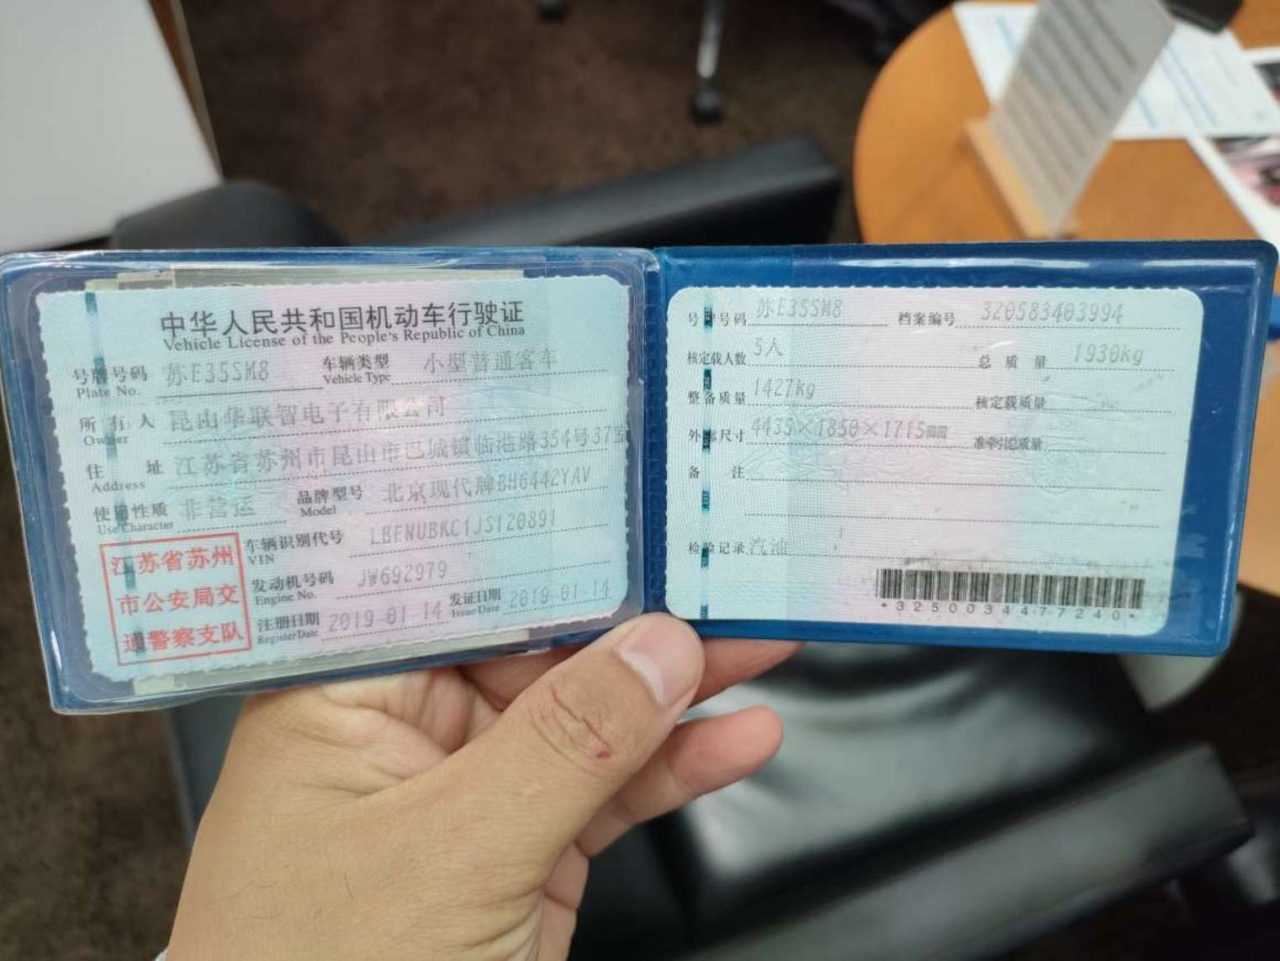 中华人民共和国机动车行驶证
Vehicle License of the People's Republic of China
号牌号码 苏E35SM8 车辆类型 小型普通客车
Plate No. Vehicle Type
所有人 昆山华联智电子有限公司
Owner
住址 江苏省苏州市昆山市巴城镇临港路354号37室
Address
使用性质 非营运 品牌型号 北京现代牌BH6442YAV
Use Character Model
车辆识别代号 LBENUBKC1JS120891
VIN
发动机号码 JW692979
Engine No.
注册日期 2019-01-14 发证日期 2019-01-14
Register Date Issue Date
江苏省苏州
市公安局交
通警察支队
号牌号码 苏E35SM8 档案编号 320583403994
核定载人数 5人 总质量 1930kg
整备质量 1427kg 核定载质量
外廓尺寸 4435×1850×1715mm 准牵引总质量
备注
检验记录 汽油
*3250034477240*